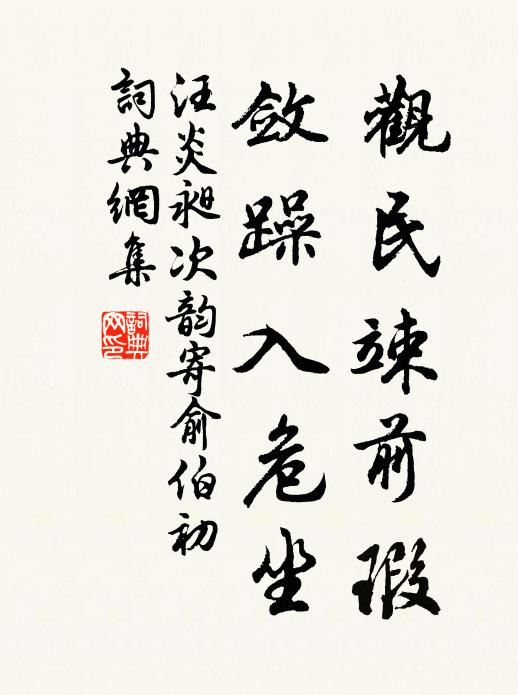 觀民竦前瑕
斂躁入危坐
汪炎昶次韵寄俞伯初
詞典網集
詞典網印